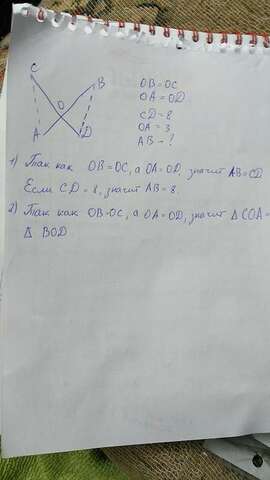 C
B
O
A
D
OB=OC
OA=OD
CD=8
OA=3
AB-?
1) Так как OB=OC, а OA=OD, значит AB=CD
Если CD=8, значит AB=8.
2) Так как OB=OC, а OA=OD, значит Δ COA=
Δ BOD